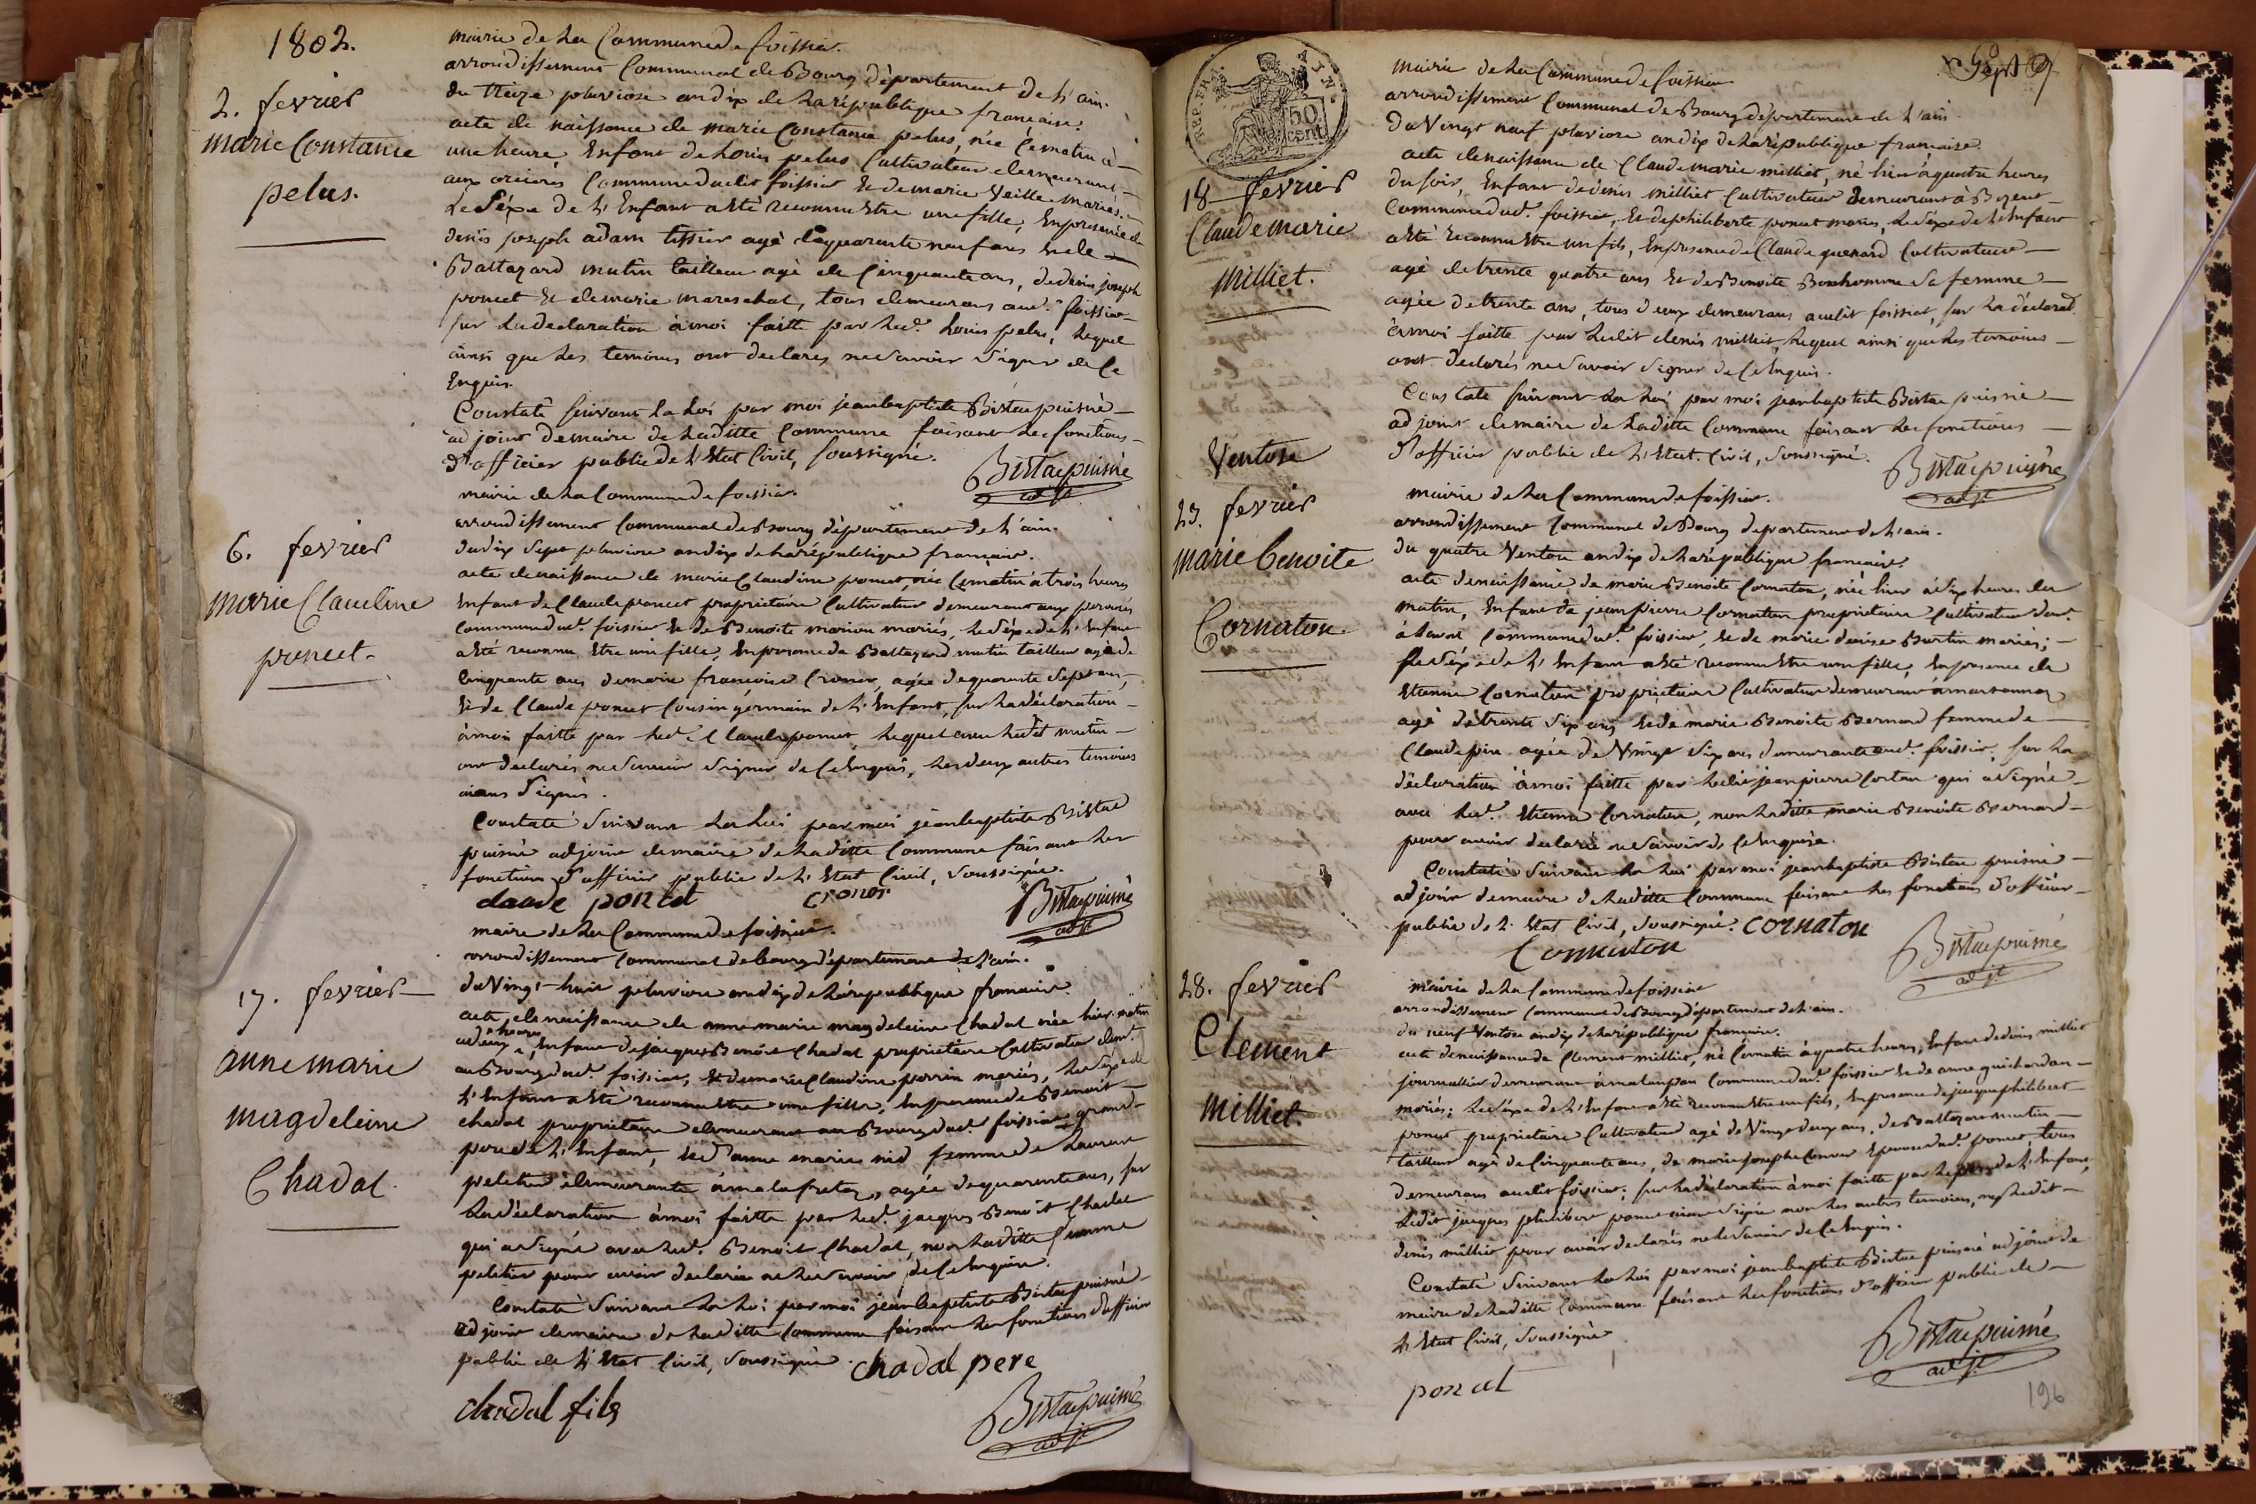 1802.
2. fevrier
marie Constance
pelus.
mairie de La Commune de foissiat.
arrondissement Communal de Bourg département de L'ain.
du treize pluviose an dix de La république francaise.
acte de naissance de marie Constance pelus, née Ce matin à
une heure, Enfant de Louis pelus Cultivateur demeurant
aux Commune dudit foissiat Et de marie Veille mariés.
Le Séxe de L'Enfant a Eté reconnu Etre une fille, En presence de
denis joseph adam tissier agé de quarante neuf ans Et de
Baltazard mutin tailleur agé de Cinquante ans, de denis joseph
poncet Et de marie mareschal, tous demeurans aud.t foissiat
sur La declaration à moi faitte par Led.t Louis pelus, Lequel
ainsi que Les temoins ont declarés ne Savoir Signer de Ce
Enquis.
Constaté suivant La Loi par moi jean baptiste Bistac puisné
adjoint de maire de Laditte Commune faisant Les fonctions
d'officier public de L'Etat Civil, soussigné.
Bistac puisné
adj.t
6. fevrier
marie Claudine
poncet.
mairie de La Commune de foissiat.
arrondissement Communal de Bourg département de L'ain.
du dix Sept pluviose an dix de La république francaise.
acte de naissance de marie Claudine poncet, née Ce matin à trois heures
Enfant de Claude poncet propriétaire Cultivateur demeurant aux
Commune dud.t foissiat Et de Benoite marion mariés, Le Séxe de L'Enfant
a Eté reconnu Etre une fille, En presence de Baltazard mutin tailleur agé de
Cinquante ans de marie francoise Croner, agée de quarante Sept ans,
Et de Claude poncet Cousin germain de L'Enfant, sur La déclaration
à moi faitte par Led.t Claude poncet, Lequel avec Ledit mutin
ont declarés ne Savoir Signer de Ce Enquis, Les deux autres temoins
aians Signés.
Constaté Suivant La Loi par moi jean baptiste Bistac
puisné adjoint de maire de Laditte Commune faisant Les
fonctions d'officier public de L'Etat Civil, Soussigné.
claude poncet croner
Bistac puisné
adj.t
17. fevrier
anne marie
magdeleine
Chadal.
maire de La Commune de foissiat.
arrondissement Communal de bourg département de L'ain.
du Vingt-huit pluviose an dix de La république francaise.
acte de naissance de anne marie magdeleine Chadal née hier matin
à deux heures, Enfant de jacques Benoit Chadal propriétaire Cultivateur dem.t
au Bourg dud.t foissiat, Et de marie Claudine perrin mariés, Le Séxe de
L'Enfant a Eté reconnu Etre une fille, En presence de Benoit
Chadal propriétaire demeurant au Bourg dud.t foissiat grand
pere de L'Enfant, Et d'anne marie nid femme de Laurent
peletier demeurante à malafretaz, agée de quarante ans, sur
La déclaration à moi faitte par Led.t jacques Benoit Chadal
qui a Signé avec Led.t Benoit Chadal, non Laditte femme
peletier pour avoir declaré ne Le Savoir de Ce Enquise.
Constaté Suivant La Loi par moi jean baptiste Bistac puisné
adjoint de maire de Laditte Commune faisant Les fonctions d'officier
public de L'Etat Civil, Soussigné.
chadal pere
chadal fils
Bistac puisné
adj.t
REP. FRA. AIN.
50
cent.
18 fevrier
Claude marie
Milliet.
mairie de La Commune de foissiat
arrondissement Communal de Bourg département de L'ain.
du Vingt neuf pluviose an dix de La république francaise.
acte de naissance de Claude marie milliet, né hier à quatre heures
du soir, Enfant de denis milliet Cultivateur demeurant à
Commune dud.t foissiat, Et de philiberte poncet mariés, Le Séxe de L'Enfant
a Eté reconnu Etre un fils, En presence de Claude quenard Cultivateur
agé de trente quatre ans Et de Benoite Bonhomme Sa femme
agée de trente ans, tous deux demeurans audit foissiat, sur La déclarat.
à moi faitte par Ledit denis milliet, Lequel ainsi que Les temoins
ont declarés ne Savoir Signer de Ce Enquis.
Constaté suivant La Loi par moi jean baptiste Bistac puisné
adjoint de maire de Laditte Commune faisant Les fonctions
d'officier public de L'Etat Civil, Soussigné.
Bistac puisné
adj.t
Ventose
23. fevrier
marie benoite
Cornaton
mairie de La Commune de foissiat.
arrondissement Communal de Bourg département de L'ain.
du quatre Ventose an dix de La république francaise.
acte de naissance de marie Benoite Cornaton, née hier à Six heures du
matin, Enfant de jean pierre Cornaton propriétaire Cultivateur dem.t
à Commune dud.t foissiat, Et de marie denise Burtin mariés;
Le Séxe de L'Enfant a Eté reconnu Etre une fille, En presence de
Etienne Cornaton propriétaire Cultivateur demeurant à marsonnaz
agé de trente Six ans Et de marie Benoite Bernard femme de
Claude agée de Vingt Six ans demeurante aud.t foissiat, sur La
déclaration à moi faitte par Ledit jean pierre Cornaton qui a Signé
avec Led.t Etienne Cornaton, non Laditte marie Benoite Bernard
pour avoir declaré ne Savoir de Ce Enquise.
Constaté Suivant La Loi par moi jean baptiste Bistac puisné
adjoint de maire de Laditte Commune faisant Les fonctions d'officier
public de L'Etat Civil, Soussigné. cornaton
Cornaton
Bistac puisné
adj.t
28. fevrier
Clement
Milliet.
mairie de La Commune de foissiat
arrondissement Communal de Bourg département de L'ain.
du neuf Ventose an dix de La république francaise.
acte de naissance de Clement milliet, né Ce matin à quatre heures, Enfant de denis milliet
journallier demeurant à Commune dud.t foissiat Et de anne guichardan
mariés; Le Séxe de L'Enfant a Eté reconnu Etre un fils, En presence de jacques philibert
poncet propriétaire Cultivateur agé de Vingt deux ans, de Baltazard mutin
tailleur agé de Cinquante ans, de marie josephe Epouse dud.t poncet, tous
demeurans audit foissiat, sur La déclaration à moi faitte par Le pere de L'Enfant,
Ledit jacques philibert poncet aiant Signé non Les autres temoins, ny Ledit
denis milliet pour avoir declarés ne Le Savoir de Ce Enquis.
Constaté Suivant La Loi par moi jean baptiste Bistac puisné adjoint de
maire de Laditte Commune faisant Les fonctions d'officier public de
L'Etat Civil, Soussigné
poncet
Bistac puisné
adj.t
196